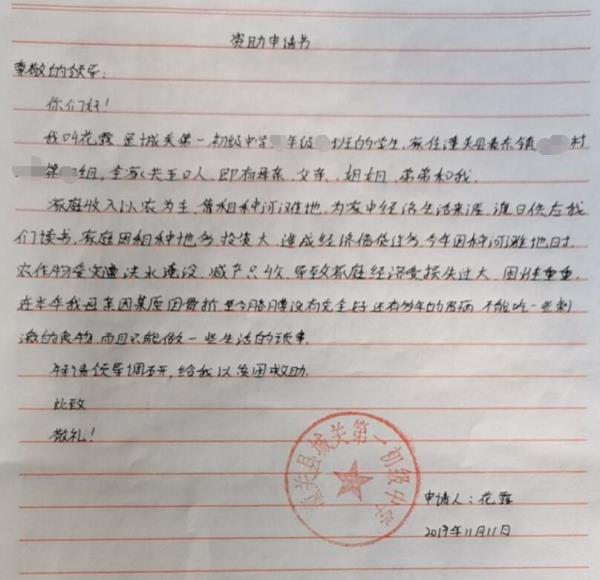 资助申请书
尊敬的领导:
你们好!
我叫花露,是城关第一初级中学年级班的学生,家住潼关县秦东镇村
第组,全家共五口人,即有母亲、父亲、姐姐、弟弟和我.
家庭收入以农为主,靠租种河滩地,为家中经济生活来源,准日供应我
们读书,家庭因租种地多投资大,造成经济借贷过多,今年因种河滩地时,
农作物受灾遭洪水淹没,减产欠收,导致家庭经济受损失过大,困难重重,
在半年我母亲因某原因骨折,至今胳膊没有完全好,还有多年的胃病,不能吃一些刺
激的食物,而且只能做一些生活的琐事.
特请领导调研,给我以策困救助.
此致
敬礼!
潼关县城关第一初级中学
申请人:花露
2019年11月11日